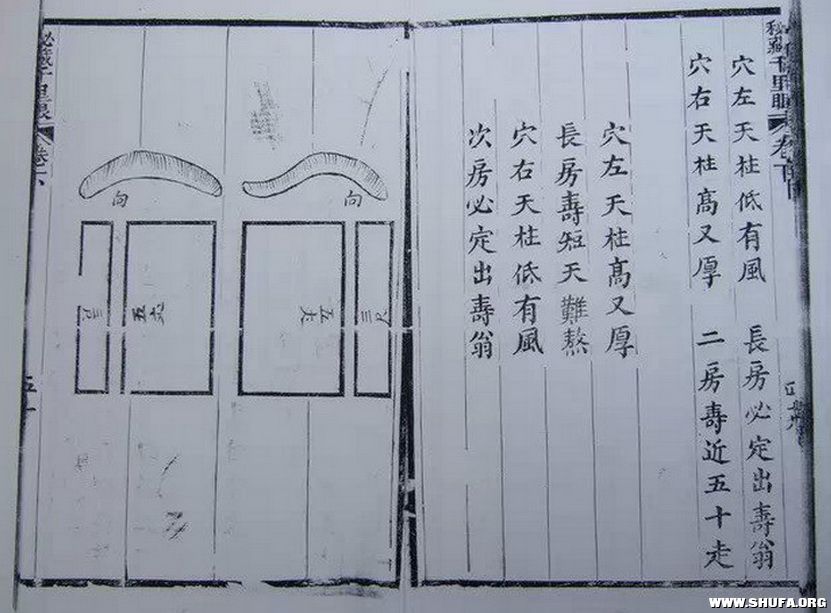 秘藏千里眼 卷
穴左天柱低有風 長房必定出壽翁
穴右天柱髙又厚 二房壽近五十走
穴左天柱髙又厚
長房壽短天難熬
穴右天柱低有風
次房必定出壽翁
向
五丈
向
五丈
秘藏千里眼 卷
WWW.SHUFA.ORG